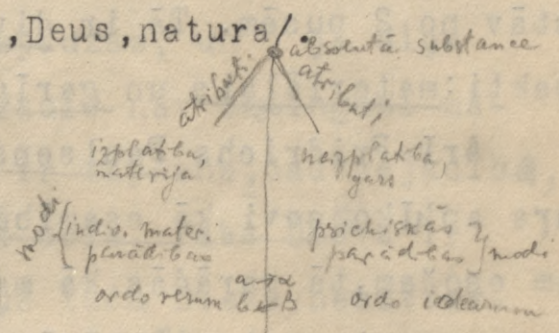 , Deus, natura
absolutā substance
atributi
atributi
izplatība,
materija
neizplatība,
gars
modi
indiv. mater.
parādības
psichiskās
parādības
modi
ordo rerum
a → α
b ← β
ordo idearum